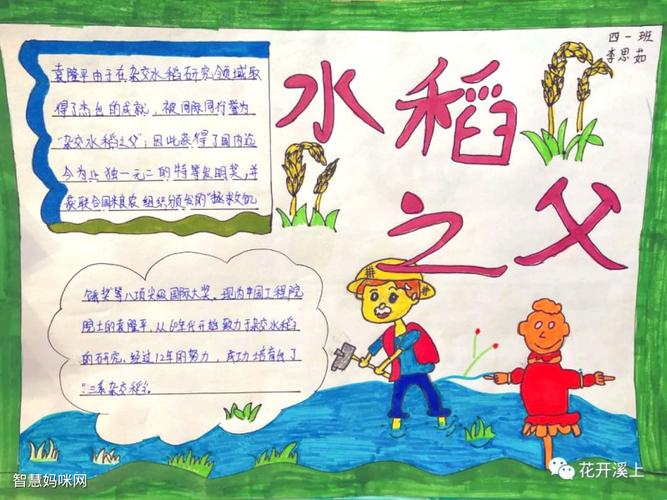 四一班
李思茹
水稻
之父
袁隆平由于在杂交水稻研究领域取
得了杰出的成就，被国际同行誉为
"杂交水稻之父"；因此获得了国内迄
今为止独一无二的特等发明奖，并
获联合国粮农组织颁发的"拯救饥
饿奖等八项尖级国际大奖。现为中国工程院
院士的袁隆平，从60年代开始致力于杂交水稻
的研究。经过12年的努力，成功培育出了
"三系杂交稻。
智慧妈咪网
花开溪上